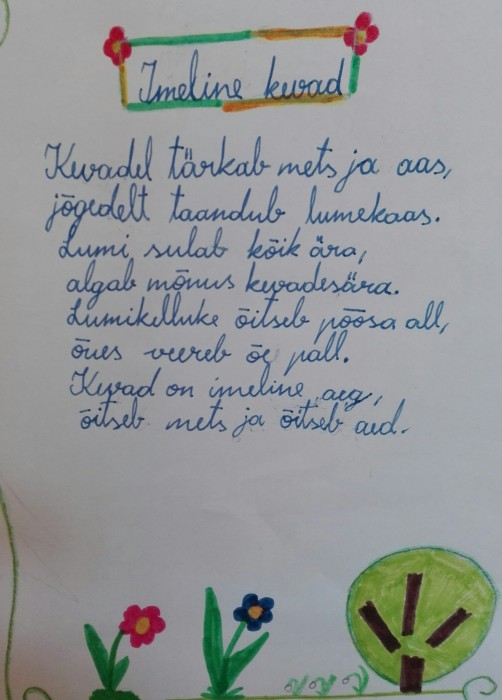 Imeline kevad
Kevadel tärkab mets ja aas,
jõgedelt taandub lumekaas.
Lumi sulab kõik ära,
algab mõnus kevadesära.
Lumikelluke õitseb põõsa all,
õues veereb õe pall.
Kevad on imeline aeg,
õitseb mets ja õitseb aed.